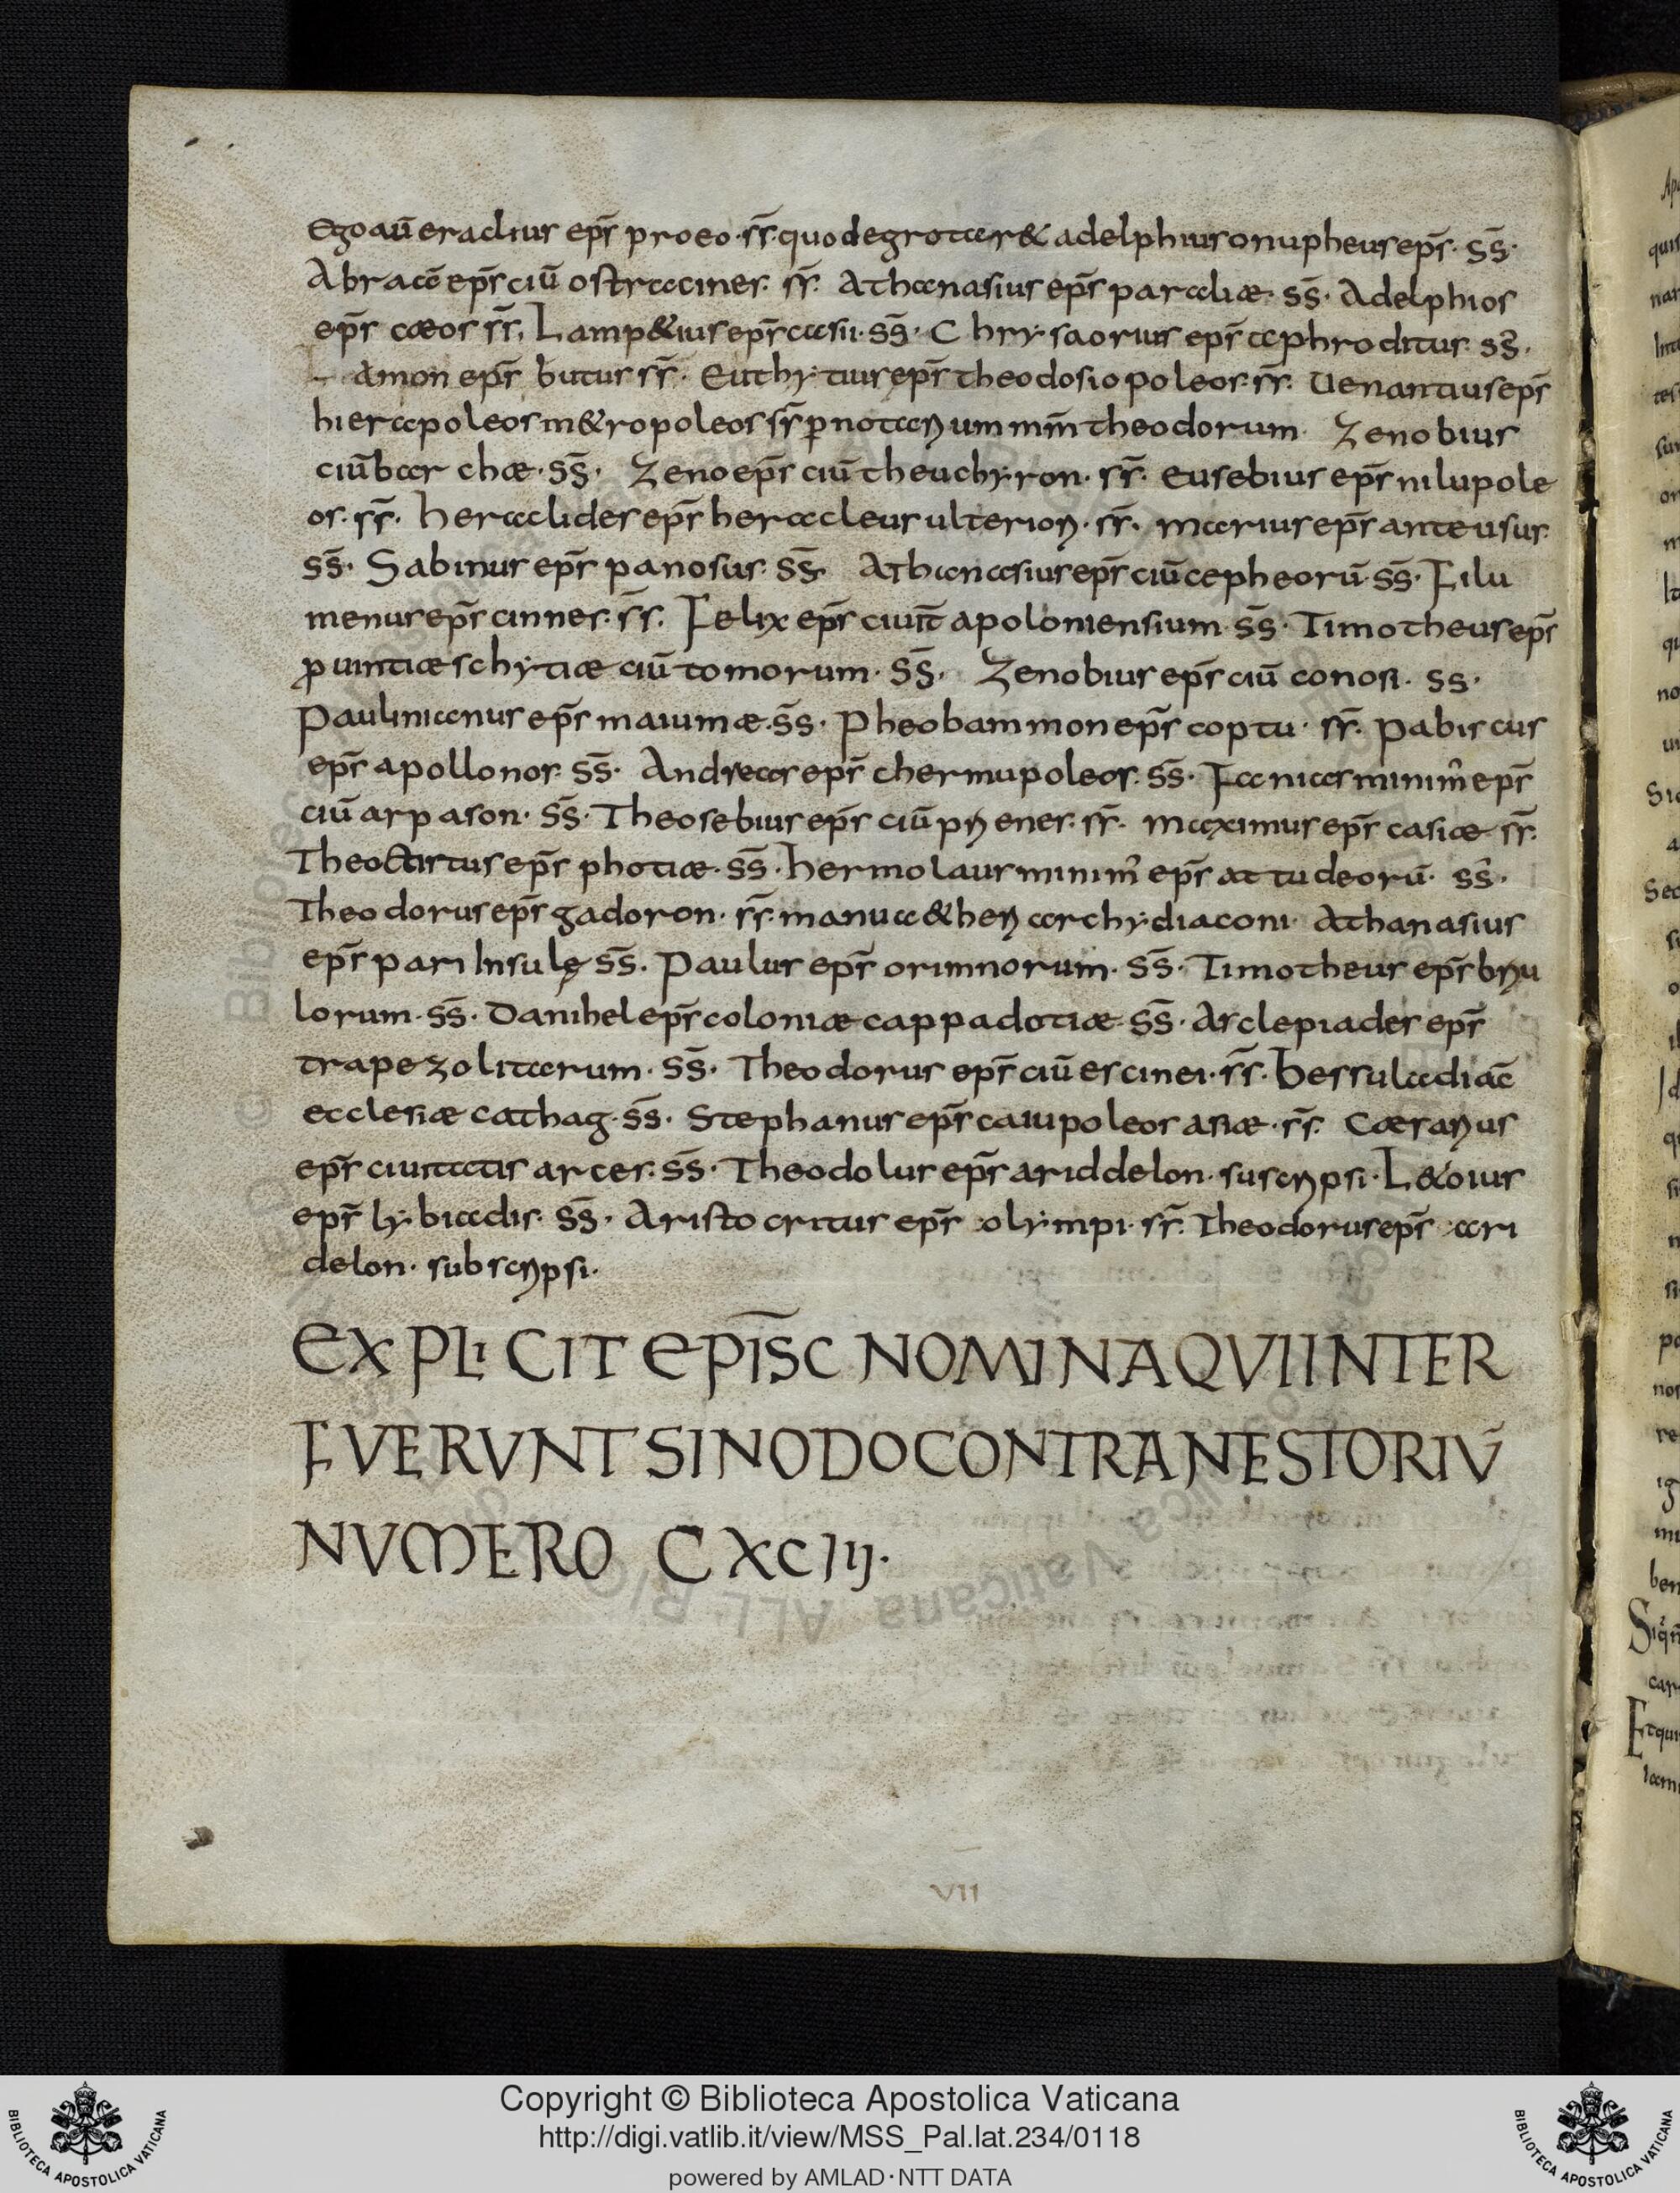 Ego aū eraclius ep̄s pro eo s̄s quod egrotat & adelphius onupheus ep̄s. s̄s.
Abraā ep̄s ciū ostracines. s̄s. Athanasius ep̄s paraliæ. s̄s. Adelphios
ep̄s caeos s̄s. Lamp&ius ep̄s casii. s̄s. Chrysaorius ep̄s aphroditus. s̄s.
Amon ep̄s butus s̄s. Euthytius ep̄s theodosiopoleos. s̄s. Uenantius ep̄s
hierapoleos m&ropoleos s̄s p notarium mm̄ theodorum. Zenobius
ciū barchæ. s̄s. Zeno ep̄s ciū theuchyron. s̄s. Eusebius ep̄s nilupole
os. s̄s. heraclides ep̄s heracleus ulterior. s̄s. Macrius ep̄s anteusus.
s̄s. Sabinus ep̄s panosus. s̄s. Athanasius ep̄s ciū cepheorū. s̄s. Filu
menus ep̄s cinnes. s̄s. Felix ep̄s ciuit̄ apoloniensium. s̄s. Timotheus ep̄s
puintiæ schytiæ ciū tomorum. s̄s. Zenobius ep̄s ciū conosi. ss.
Paulinianus ep̄s maiumæ. s̄s. Pheobammon ep̄s coptu. s̄s. Pabiscus
ep̄s apollonos. s̄s. Andreas ep̄s chermupoleos. s̄s. Fanias minim̄ ep̄s
ciū arpason. s̄s. Theosebius ep̄s ciū prienes. s̄s. Maximus ep̄s casiæ s̄s.
Theoctistus ep̄s photiæ. s̄s. hermolaus minim̄ ep̄s attudeorū. s̄s.
Theodorus ep̄s gadoron. s̄s. manu a&heri archydiaconi. Athanasius
ep̄s pari Insulę s̄s. Paulus ep̄s orimnorum. s̄s. Timotheus ep̄s briu
lorum. s̄s. Danihel ep̄s coloniæ cappadotiæ. s̄s. Asclepiades ep̄s
trapezolitarum. s̄s. Theodorus ep̄s ciū escinei. s̄s. bessula diac̄
ecclesiæ cathag. s̄s. Stephanus ep̄s caiupoleos asiæ. s̄s. Cæsarius
ep̄s ciuitatis arces. s̄s. Theodolus ep̄s ariddelon. suscripsi. L&oius
ep̄s lybiadis. s̄s. Aristocritus ep̄s olympi. s̄s. Theodorus ep̄s ari
delon. subscripsi.
EXPLICIT EPĪSC NOMINA QVI INTER
FVERVNT SINODO CONTRA NESTORIV̄
NVMERO CXCIIJ.
VII
Copyright © Biblioteca Apostolica Vaticana
http://digi.vatlib.it/view/MSS_Pal.lat.234/0118
powered by AMLAD·NTT DATA
BIBLIOTECA APOSTOLICA VATICANA
BIBLIOTECA APOSTOLICA VATICANA